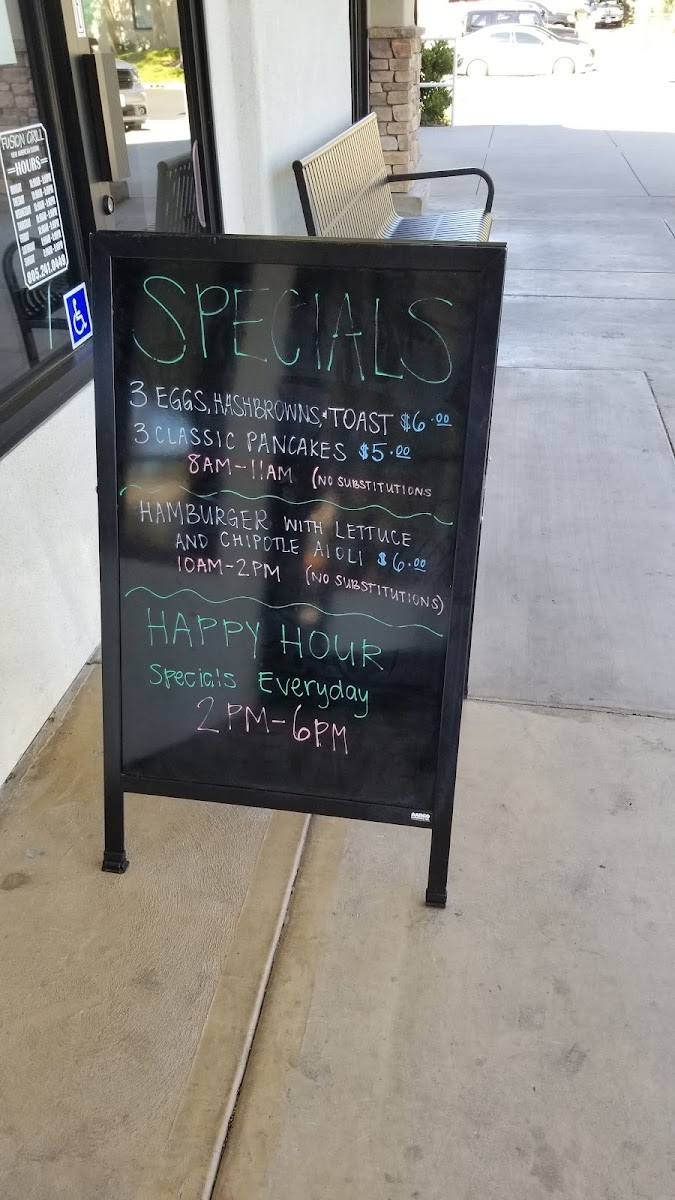 SPECIALS
3 EGGS, HASHBROWNS, & TOAST $6.00
3 CLASSIC PANCAKES $5.00
8AM-11AM (NO SUBSTITUTIONS
HAMBURGER WITH LETTUCE
AND CHIPOTLE AIOLI $6.00
10AM-2PM (NO SUBSTITUTIONS)
HAPPY HOUR
Specials Everyday
2PM-6PM
FUSION GRILL
NEW AMERICAN CUISINE
HOURS
805.241.0440